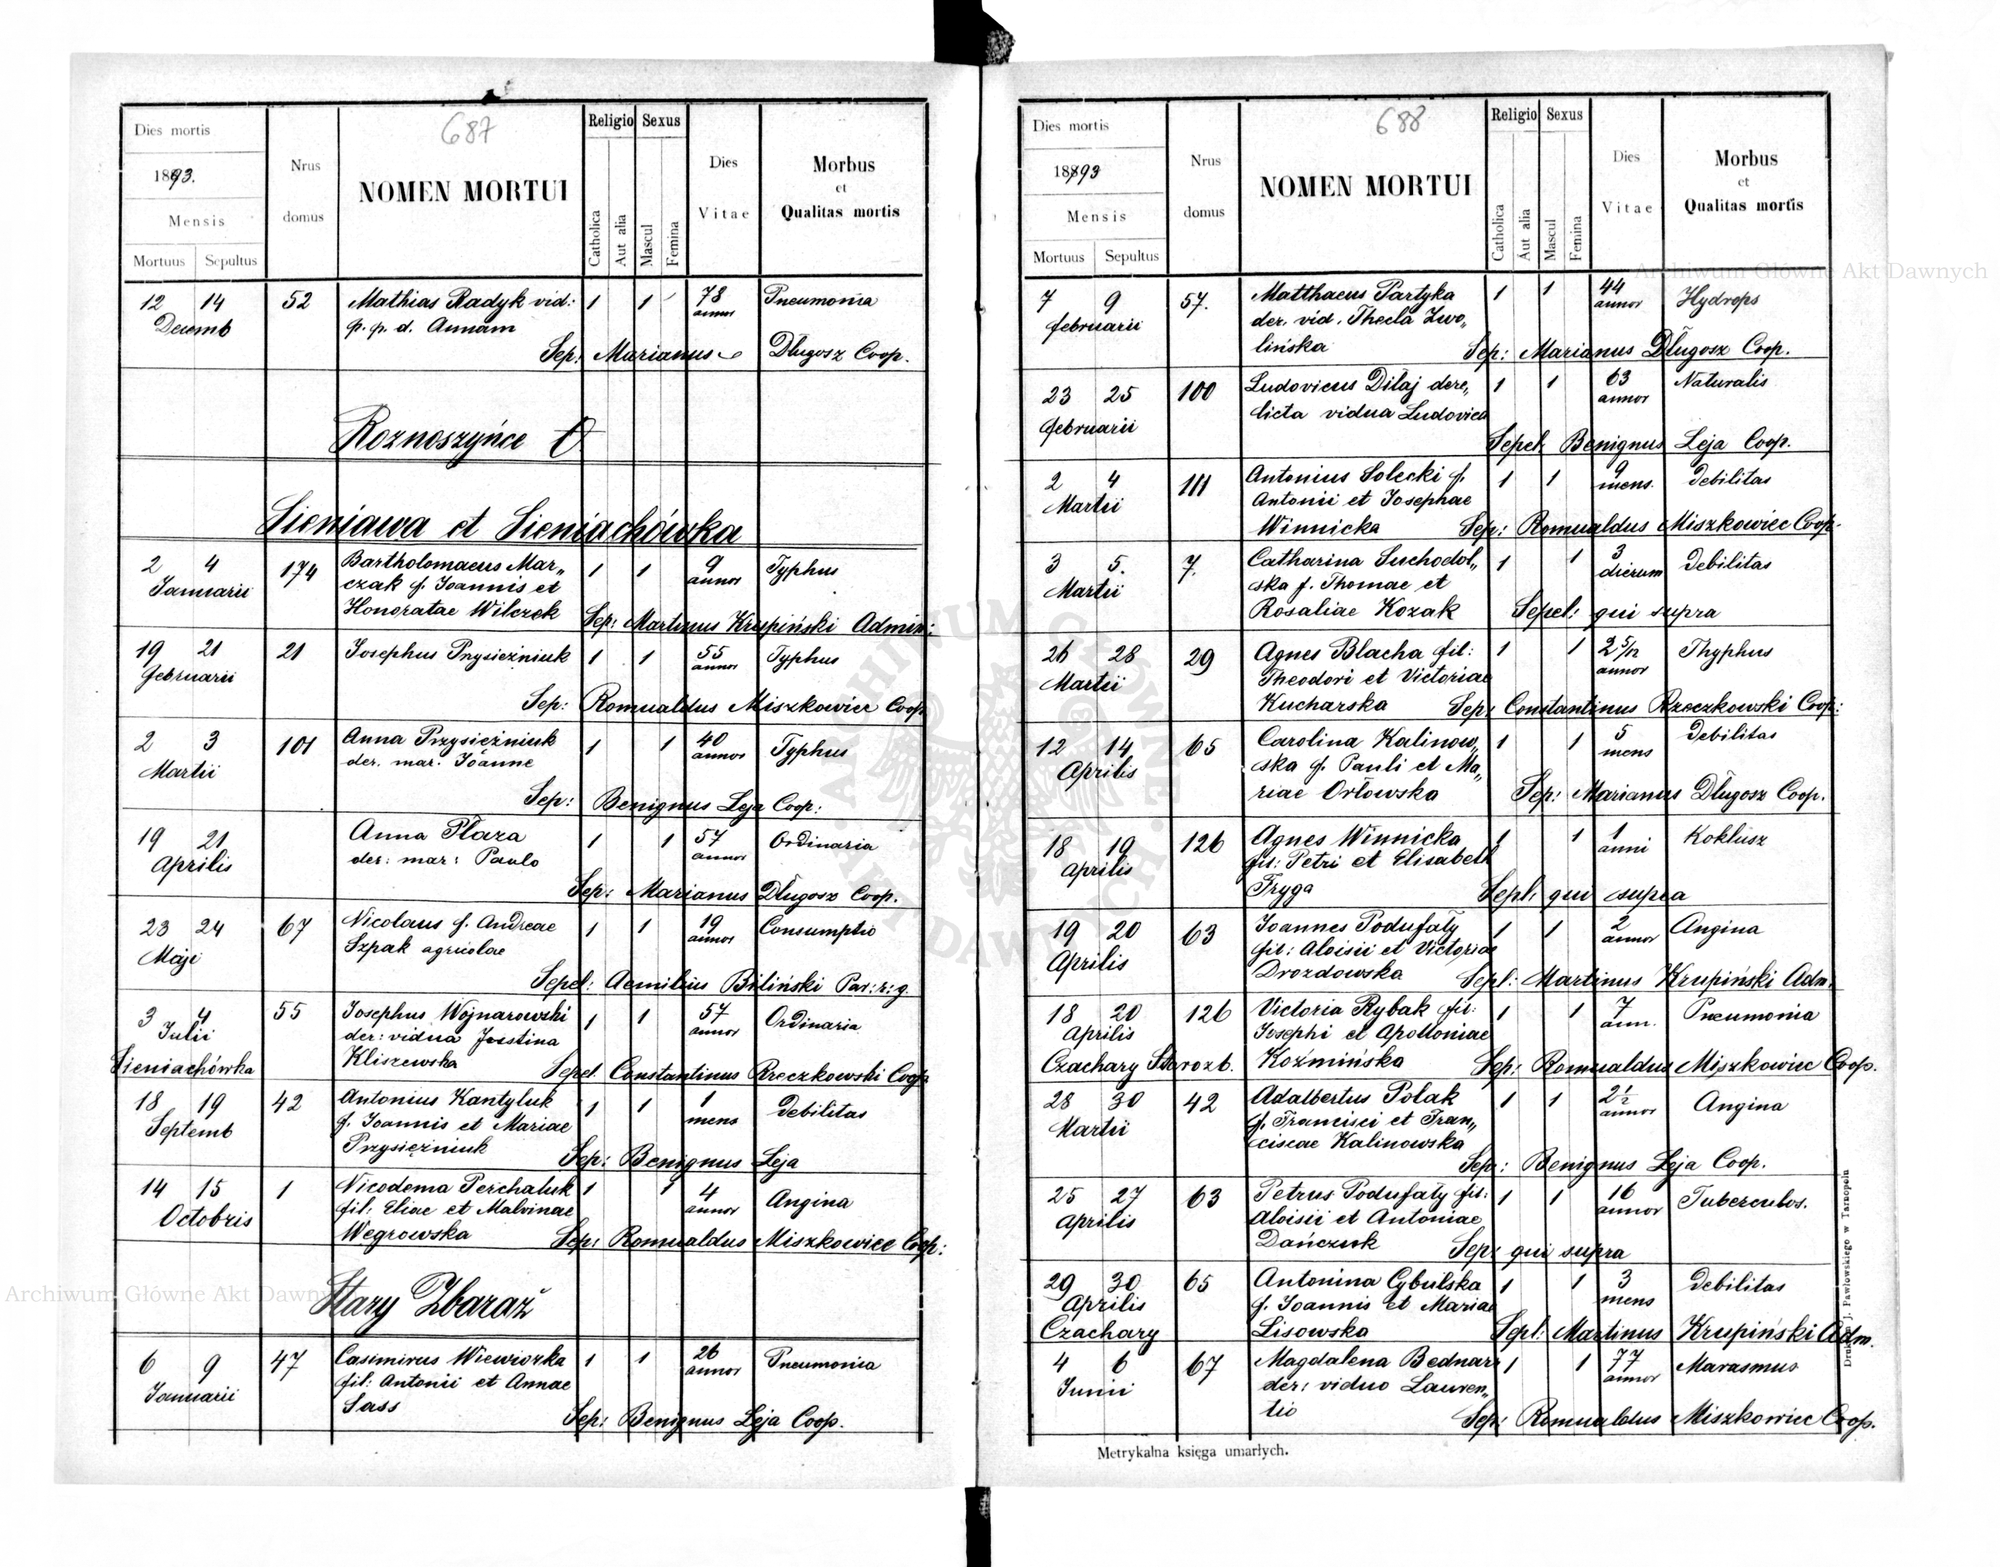 687
Dies mortis
1893.
Mensis
Mortuus Sepultus
Nrus domus
NOMEN MORTUI
Religio Sexus
Catholica Aut alia Mascul Femina
Dies Vitae
Morbus et Qualitas mortis
12 14 52 Mathias Radyk vid: 1 1 78 Pneumonia
Decemb p. p. d. Annam annor
Sep: Marianus Długosz Coop.
Roznoszyńce
Sieniawa et Sieniachówka
2 4 174 Bartholomaeus Mar„ 1 1 9 Typhus
Januarii czak f. Joannis et annor
Honoratae Wilczek Sep: Martinus Krupiński Admin:
19 21 21 Josephus Prysiezniuk 1 1 55 Typhus
februarii annor
Sep: Romualdus Miszkowiec Coop
2 3 101 Anna Przysiężniuk 1 1 40 Typhus
Martii der. mar. Joanne annor
Sep: Benignus Leja Coop:
19 21 Anna Płaza 1 1 57 Ordinaria
Aprilis der: mar: Paulo annor
Sep: Marianus Długosz Coop.
23 24 67 Nicolaus f. Andreae 1 1 19 Consumptio
Maji Szpak agricolae annor
Sepel: Aemilius Biliński Par: r: g.
3 4 55 Josephus Wojnarowski 1 1 57 Ordinaria
Julii der: vidua Justina annor
Sieniachówka Kliszewska Sepel. Constantinus Rzeczkowski Coop
18 19 42 Antonius Kantyluk 1 1 1 Debilitas
Septemb f. Joannis et Mariae mens
Przysiezniuk Sep: Benignus Leja
14 15 1 Nicodema Perchaluk 1 1 4 Angina
Octobris fil: Eliae et Malvinae annor
Wegrowska Sep: Romualdus Miszkowiec Coop:
Stary Zbaraż
6 9 47 Casimirus Wiewiorka 1 1 26 Pneumonia
Januarii fil: Antonii et Annae annor
Sass Sep: Benignus Leja Coop.
688
Dies mortis
1893
Mensis
Mortuus Sepultus
Nrus domus
NOMEN MORTUI
Religio Sexus
Catholica Aut alia Mascul Femina
Dies Vitae
Morbus et Qualitas mortis
7 9 57. Matthaeus Partyka 1 1 44 Hydrops
februarii der. vid. Thecla Zwo„ annor
lińska Sep: Marianus Długosz Coop.
23 25 100 Ludovicus Diłaj dere„ 1 1 63 Naturalis
februarii licta vidua Ludovica annor
Sepel: Benignus Leja Coop.
2 4 111 Antonius Solecki f. 1 1 9 Debilitas
Martii Antonii et Josephae mens.
Winnicka Sep: Romualdus Miszkowiec Coop.
3 5. 7. Catharina Suchodol„ 1 1 3 Debilitas
Martii ska f. Thomae et dierum
Rosaliae Kozak Sepel: qui supra
26 28 29 Agnes Blacha fil: 1 1 2 5/12 Thyphus
Martii Theodori et Victoriae annor
Kucharska Sep: Constantinus Rzeczkowski Coop:
12 14 65 Carolina Kalinow„ 1 1 5 Debilitas
Aprilis ska f. Pauli et Ma„ mens
riae Orłowska Sep: Marianus Długosz Coop.
18 19 126 Agnes Winnicka 1 1 1 Koklusz
Aprilis fil: Petri et Elisabeth anni
Fryga Sepl: qui supra
19 20 63 Joannes Podufały 1 1 2 Angina
Aprilis fil: Aloisii et Victoriae annor
Drozdowska Sepl: Martinus Krupiński Adm:
18 20 126 Victoria Rybak fil: 1 1 7 Pneumonia
Aprilis Josephi et Apolloniae ann.
Czachary Starozb. Koźmińska Sep: Romualdus Miszkowiec Coop.
28 30 42 Adalbertus Polak 1 1 2 1/2 Angina
Martii f. Francisci et Fran„ annor
ciscae Kalinowska
Sep: Benignus Leja Coop.
25 27 63 Petrus Podufały fil: 1 1 16 Tuberculos.
Aprilis Aloisii et Antoniae annor
Dańczuk Sep: qui supra
29 30 65 Antonina Cybulska 1 1 3 Debilitas
Aprilis f. Joannis et Mariae mens
Czachary Lisowska Sepl: Martinus Krupiński Adm.
4 6 67 Magdalena Bednarz 1 1 77 Marasmus
Junii der: viduo Lauren„ annor
tio Sep: Romualdus Miszkowiec Coop.
Metrykalna księga umarłych.
Drukiem J. Pawłowskiego w Tarnopolu
Archiwum Główne Akt Dawnych
Archiwum Główne Akt Dawnych
ARCHIWUM GŁÓWNE AKT DAWNYCH